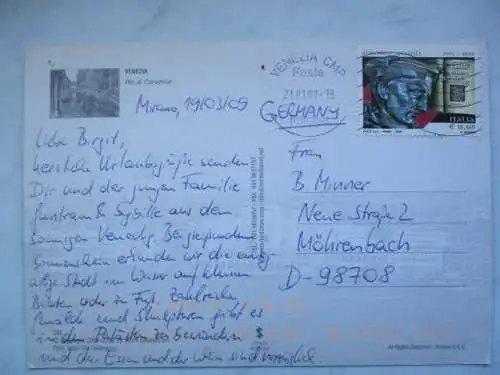 VENEZIA
Rio di Cannaregio
Mirano, 19/03/09
Liebe Birgit,
herzliche Urlaubsgrüße senden
Dir und der jungen Familie
Guntram & Sybille aus dem
sonnigen Venedig. Bei
Sonnenschein erkunden wir die
alte Stadt im Wasser auf kleinen
Booten oder zu Fuß. Zahlreiche
Gemälde und Skulpturen gibt es
in den Palästen zu bewundern
und das Essen und der Wein sind
VENEZIA CMP
Posta
GERMANY
ITALIA
€ 0,60
Frau
B. Minner
Neue Straße 2
Möhrenbach
D-98708